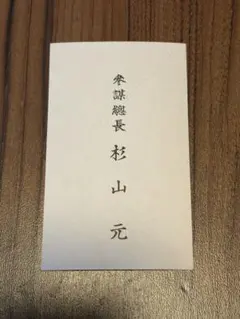 參謀總長 杉山元